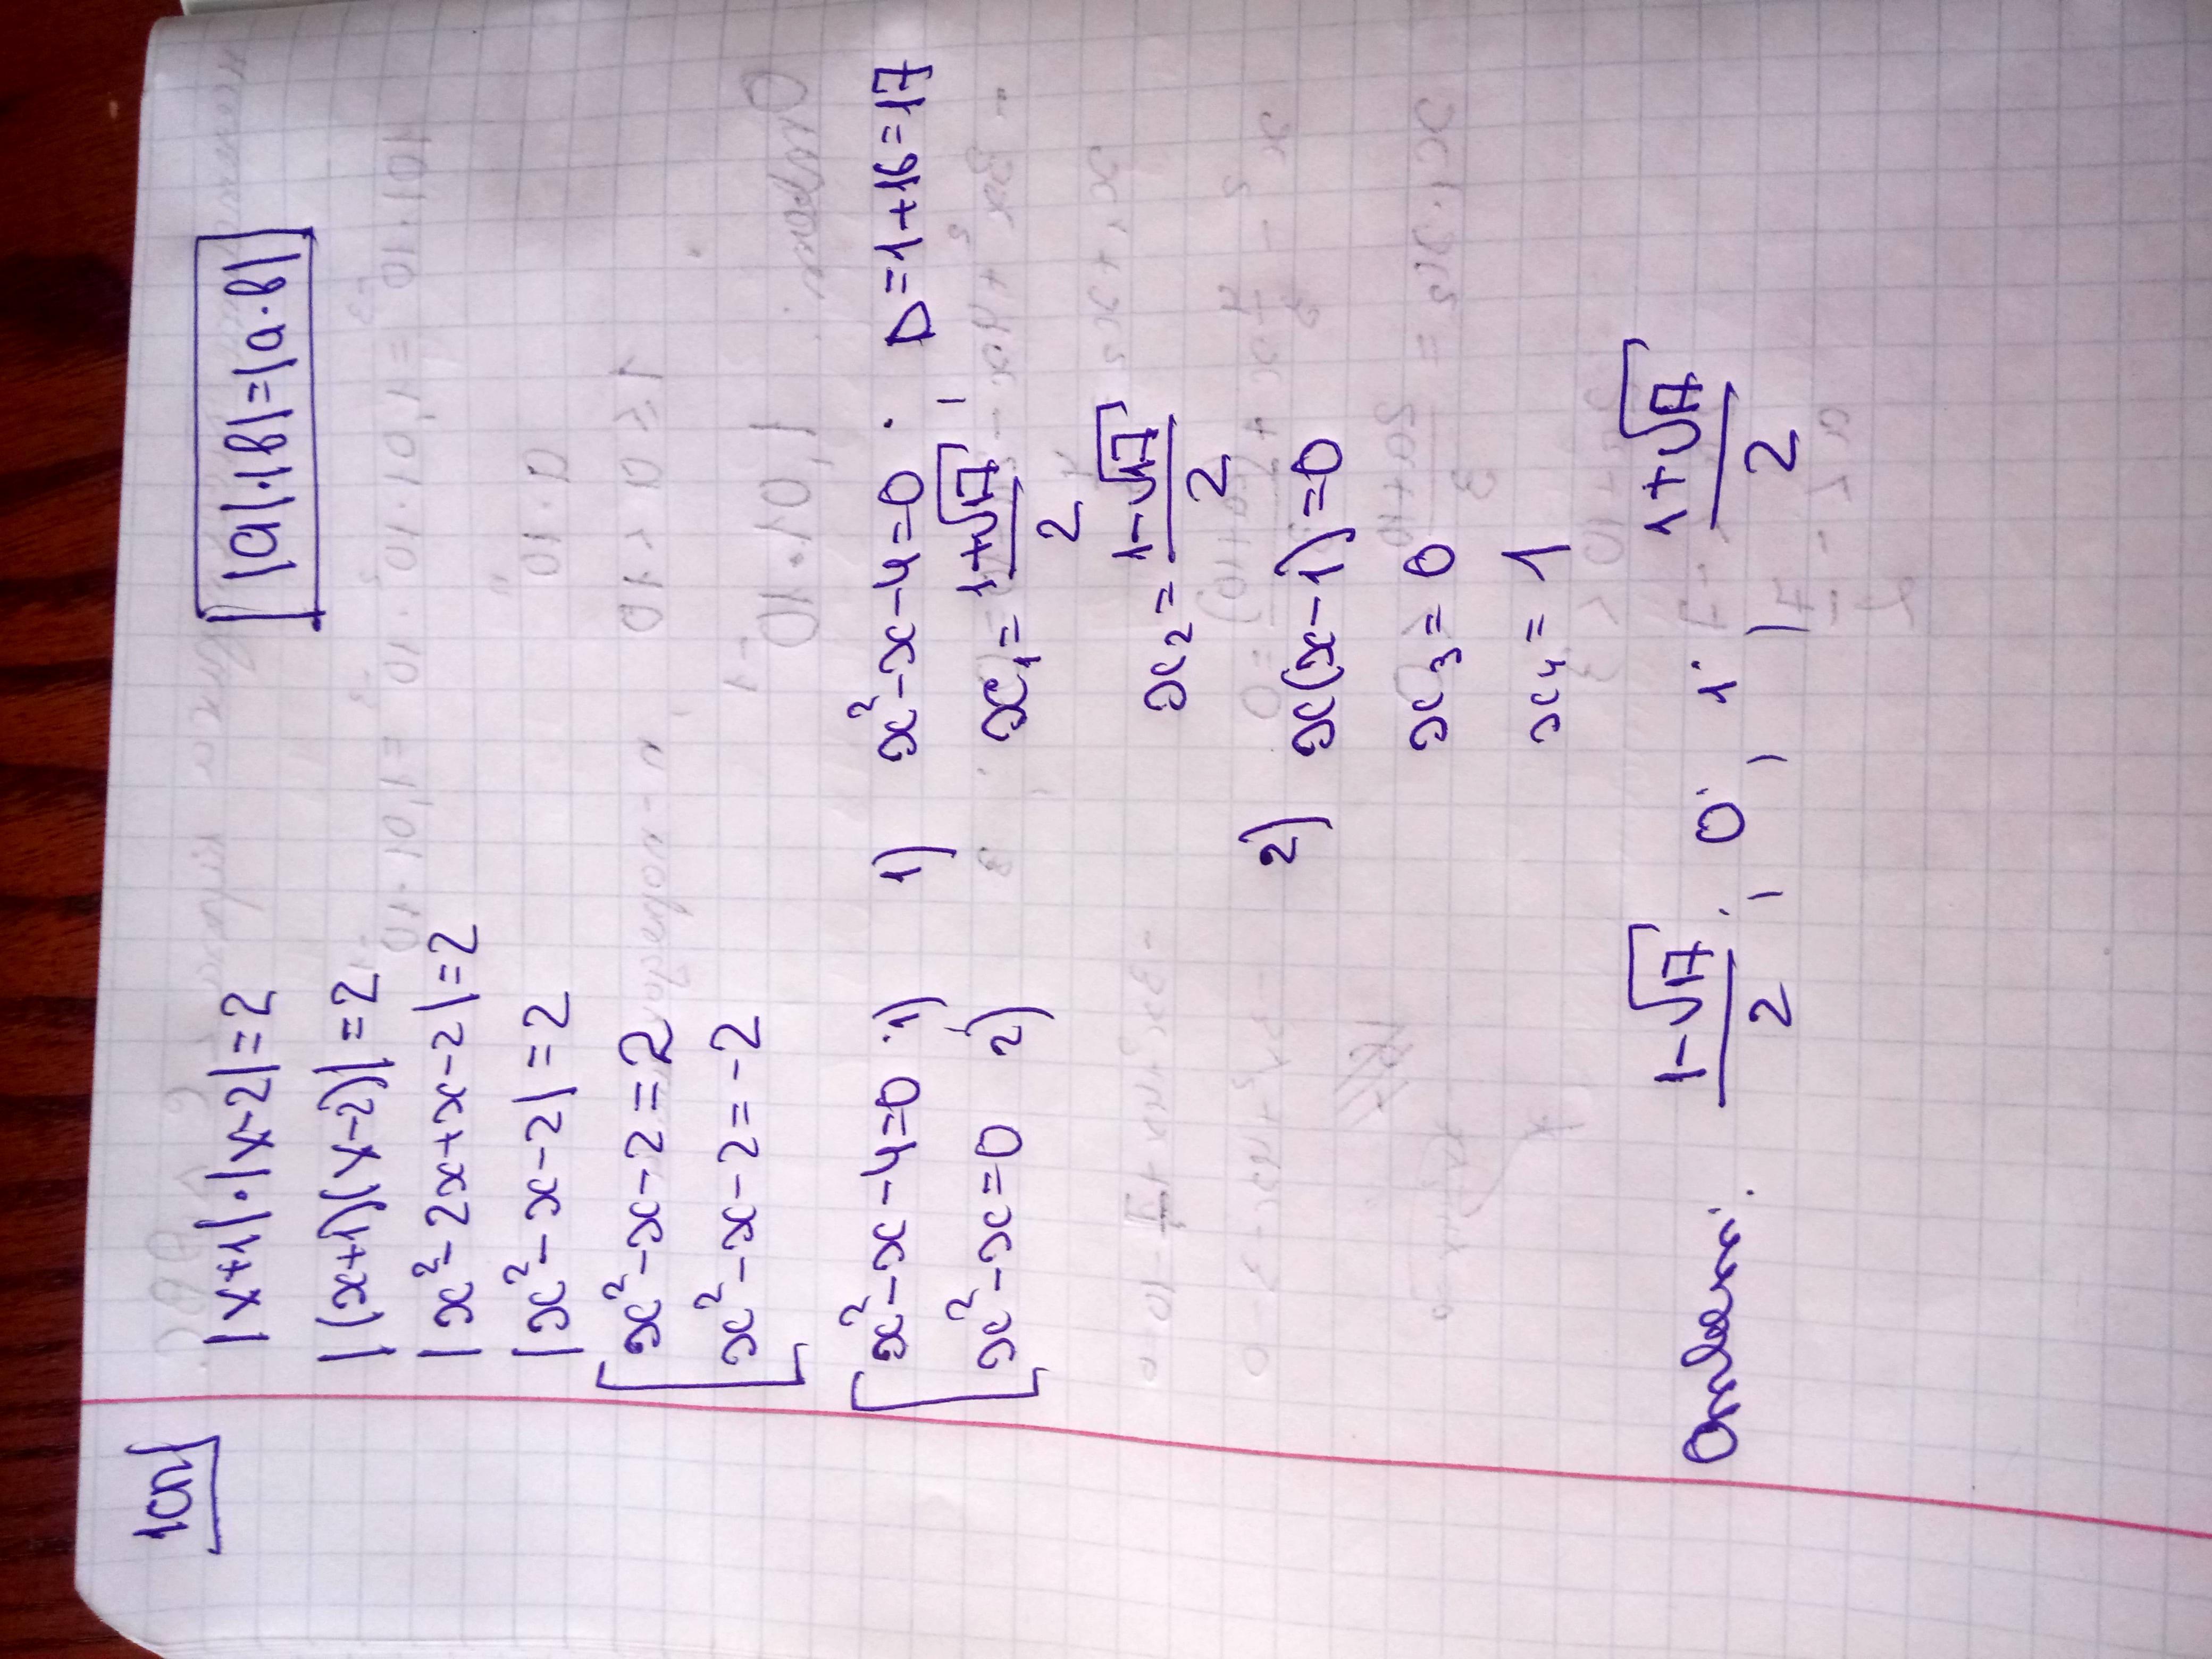 1сп
|x+1|·|x-2|=2
|a|·|b|=|a·b|
|(x+1)(x-2)|=2
|x²-2x+x-2|=2
|x²-x-2|=2
[x²-x-2=2
x²-x-2=-2
[x²-x-4=0 1)
x²-x=0 2)
1) x²-x-4=0. D=1+16=17
x₁=(1+√17)/2,
x₂=(1-√17)/2
2) x(x-1)=0
x₃=0
x₄=1
Ответ: (1-√17)/2; 0; 1; (1+√17)/2